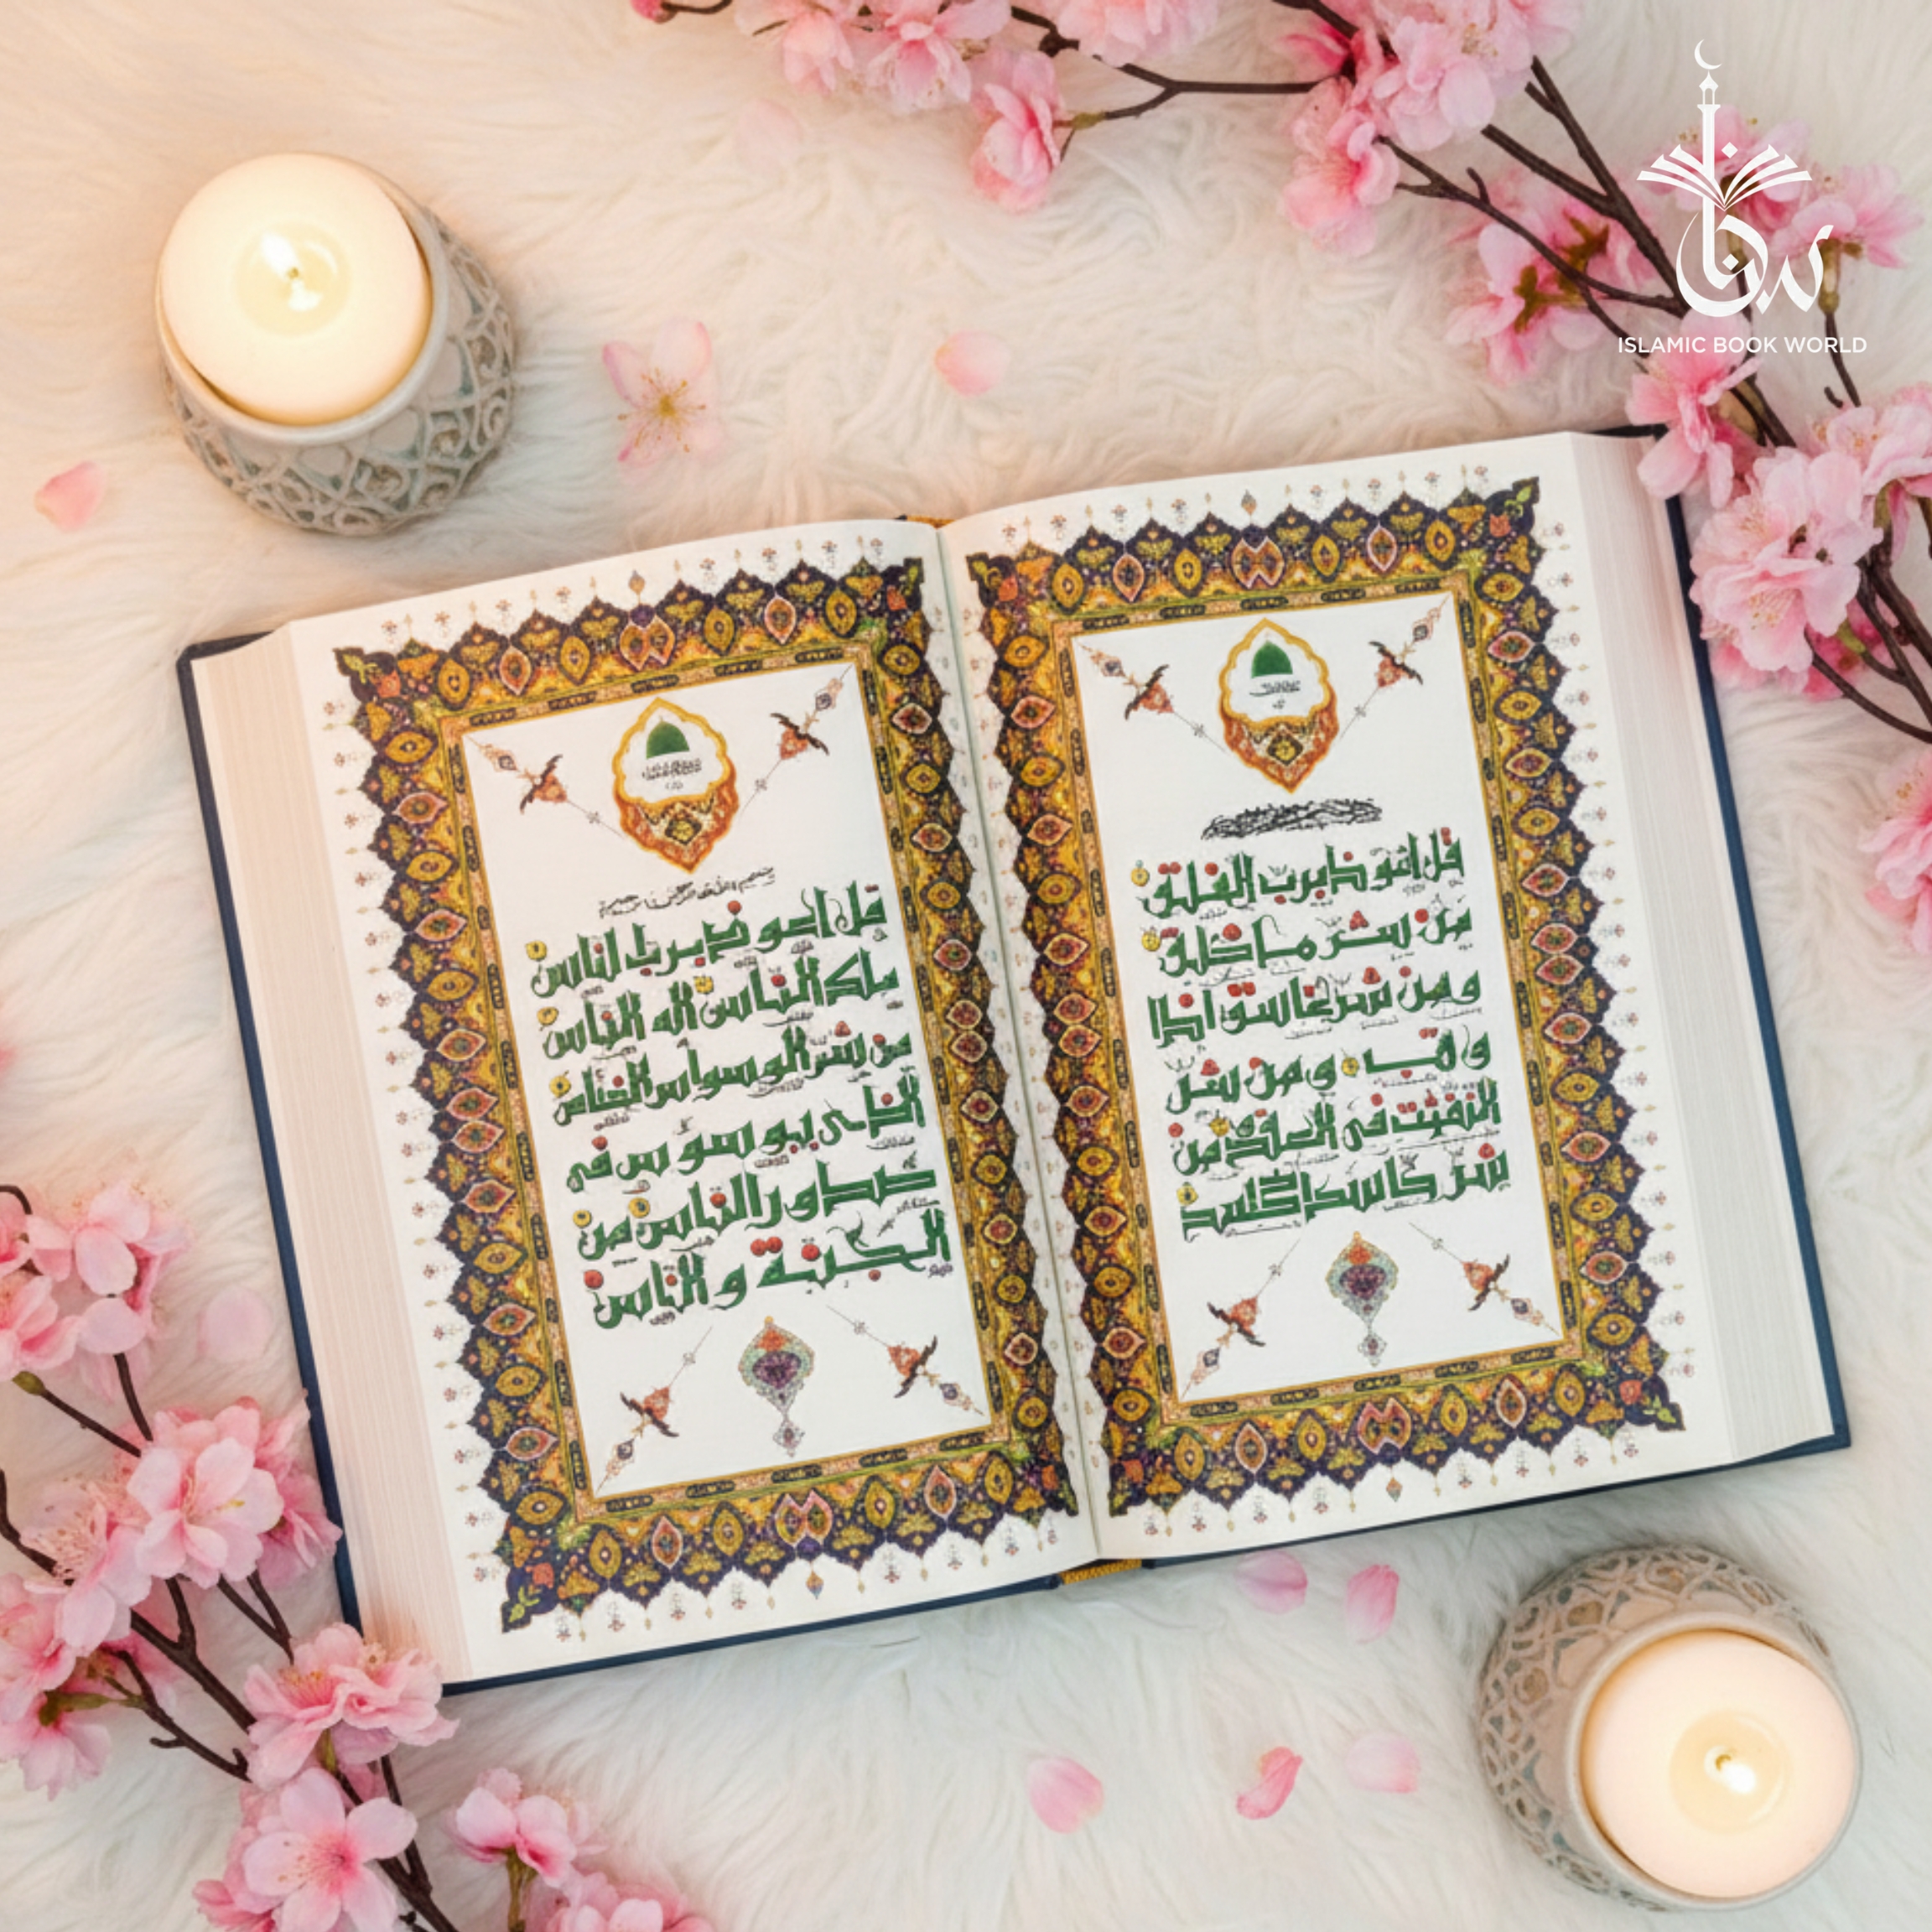 ISLAMIC BOOK WORLD
قل اعوذ برب الفلق
من شر ما خلق
ومن شر غاسق اذا
وقب ومن شر
النفثت في العقد من
شر حاسد اذا حسد
قل اعوذ برب الناس
ملك الناس اله الناس
من شر الوسواس الخناس
الذى يوسوس فى
صدور الناس من
الجنة والناس